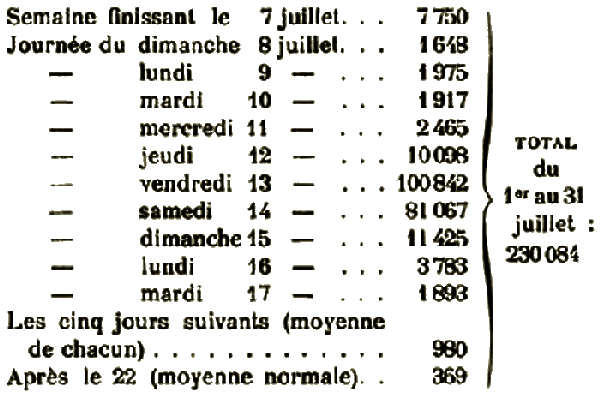 Semaine finissant le 7 juillet. . . 7 750
Journée du dimanche 8 juillet. . . 1 648
— lundi 9 — . . . 1 975
— mardi 10 — . . . 1 917
— mercredi 11 — . . . 2 465
— jeudi 12 — . . . 10 098
— vendredi 13 — . . . 100 842
— samedi 14 — . . . 81 067
— dimanche 15 — . . . 11 425
— lundi 16 — . . . 3 783
— mardi 17 — . . . 1 893
Les cinq jours suivants (moyenne
de chacun) . . . . . . . . . . . . . 980
Après le 22 (moyenne normale). . 369
TOTAL
du
1er au 31
juillet :
230 084